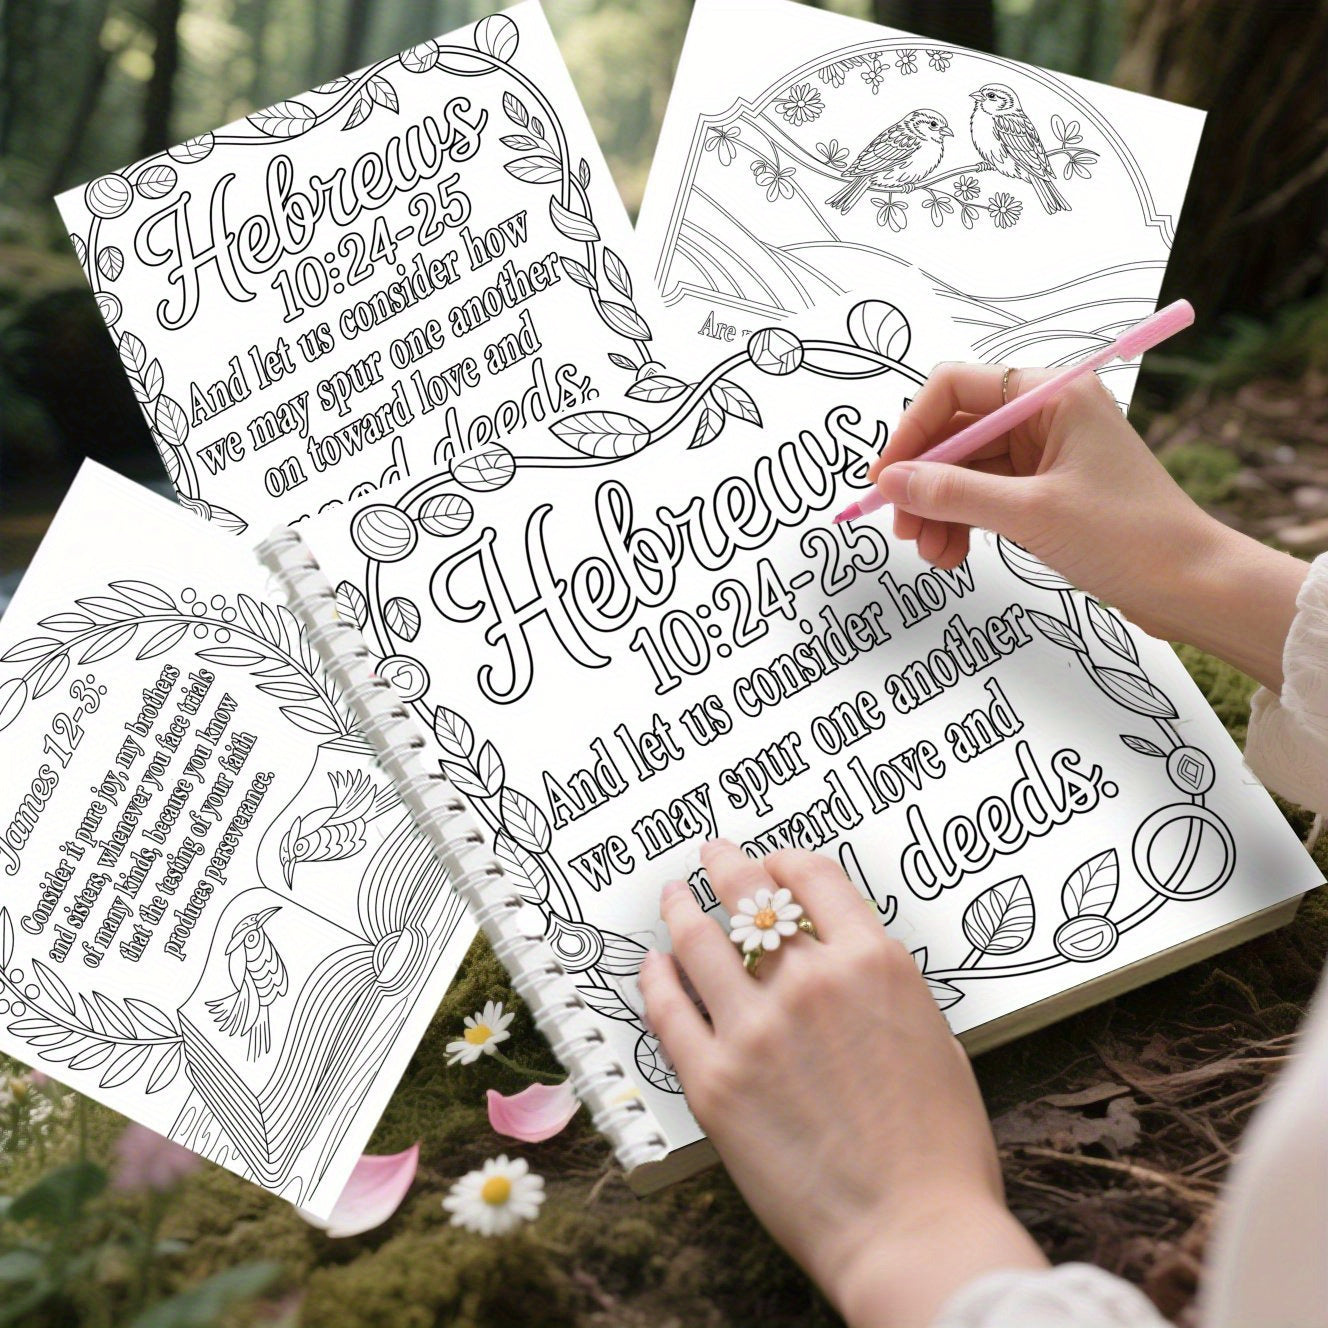 Hebrews
10:24-25
And let us consider how
we may spur one another
on toward love and
deeds.
Are
James 12-3:
Consider it pure joy, my brothers
and sisters, whenever you face trials
of many kinds, because you know
that the testing of your faith
produces perseverance.
Hebrews
10:24-25
And let us consider how
we may spur one another
toward love and
deeds.